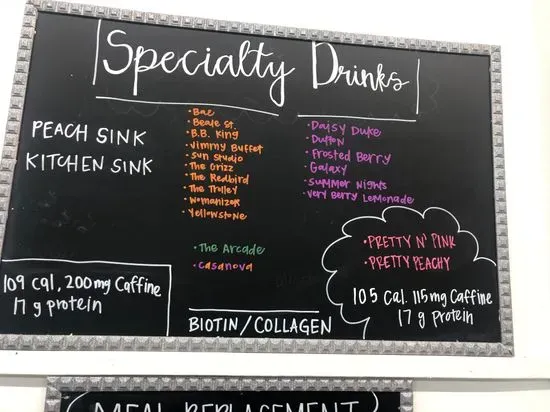 Specialty Drinks
PEACH SINK
KITCHEN SINK
109 cal, 200mg Caffine
17 g protein
• Bae
• Beale St.
• B.B. King
• Jimmy Buffet
• Sun Studio
• The Grizz
• The Redbird
• The Trolley
• Womanizer
• Yellowstone
• The Arcade
• Casanova
BIOTIN/COLLAGEN
• Daisy Duke
• Dutton
• Frosted Berry
• Galaxy
• Summer Nights
• Very Berry Lemonade
• PRETTY N' PINK
• PRETTY PEACHY
105 Cal. 115mg Caffine
17 g Protein
MEAL REPLACEMENT